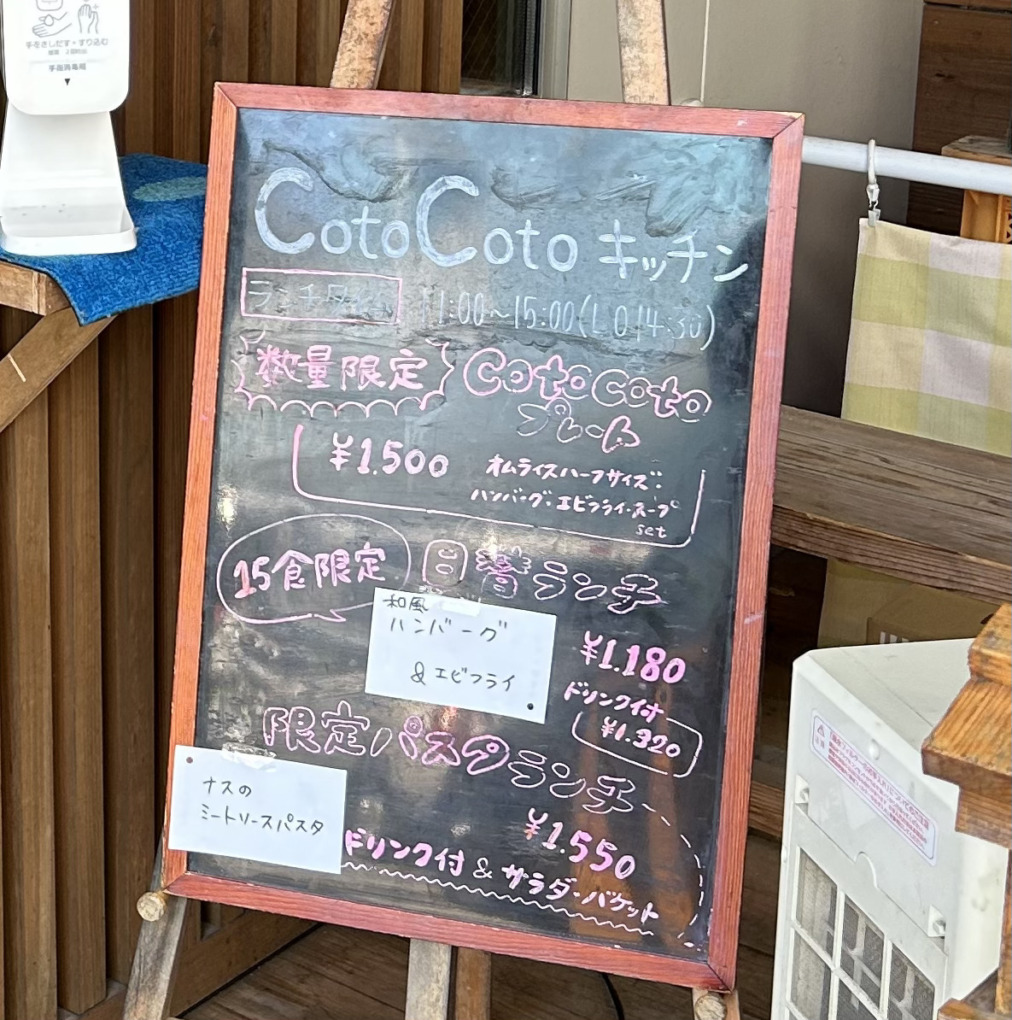 手をさしだす・すり込む
手指消毒剤
CotoCoto キッチン
ランチタイム 11:00~15:00(L.O 14:30)
数量限定 CotoCoto
プレート
¥1.500
オムライスハーフサイズ・
ハンバーグ・エビフライ・スープ
set
15食限定 日替ランチ
和風
ハンバーグ
&エビフライ
¥1.180
ドリンク付
¥1.320
限定パスタランチ
ナスの
ミートソースパスタ
¥1.550
ドリンク付 & サラダ・バケット